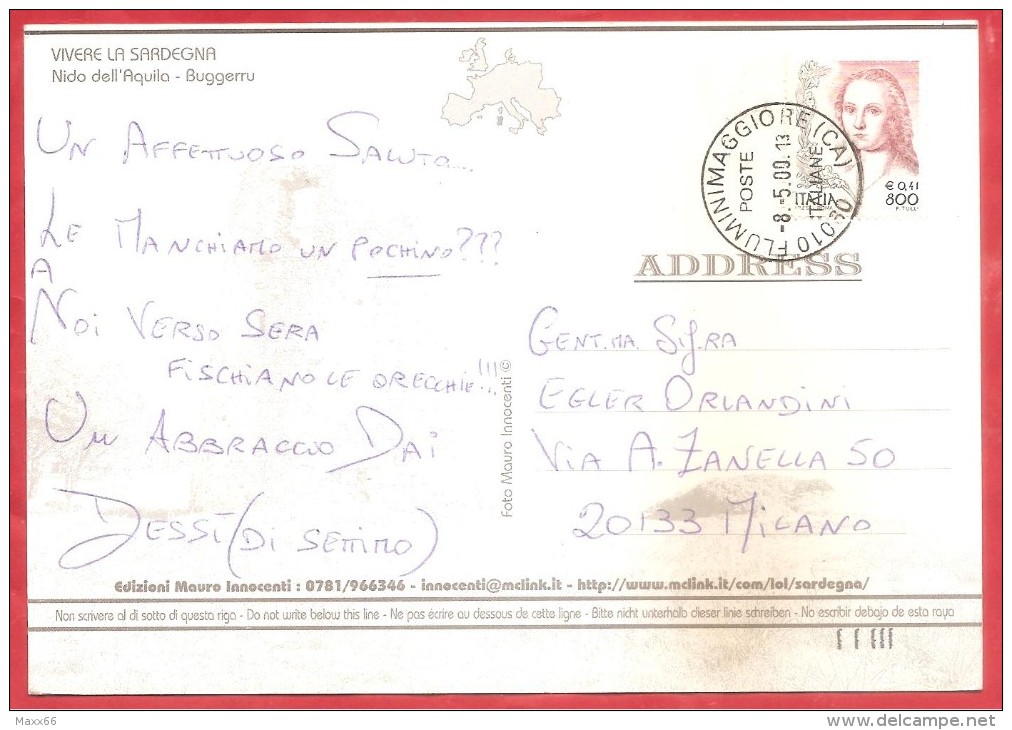 VIVERE LA SARDEGNA
Nido dell'Aquila - Buggerru
UN AFFETTUOSO SALUTO...
LE MANCHIAMO UN POCHINO???
A
NOI VERSO SERA
FISCHIANO LE ORECCHIE!!!
UN ABBRACCIO DAI
DESSÌ (DI SETTIMO)
Foto Mauro Innocenti ©
09010 FLUMINIMAGGIORE (CA)
POSTE
-8.-5.00.13
ITALIANE
ITALIA
€ 0,41
800
ADDRESS
GENT.MA SIG.RA
EGLER ORLANDINI
VIA A. ZANELLA 50
20133 MILANO
Edizioni Mauro Innocenti : 0781/966346 - innocenti@mclink.it - http://www.mclink.it/com/lol/sardegna/
Non scrivere al di sotto di questa riga - Do not write below this line - Ne pas écrire au dessous de cette ligne - Bitte nicht unterhalb dieser linie schreiben - No escribir debajo de esta raya
Maxx66
delcampe.net